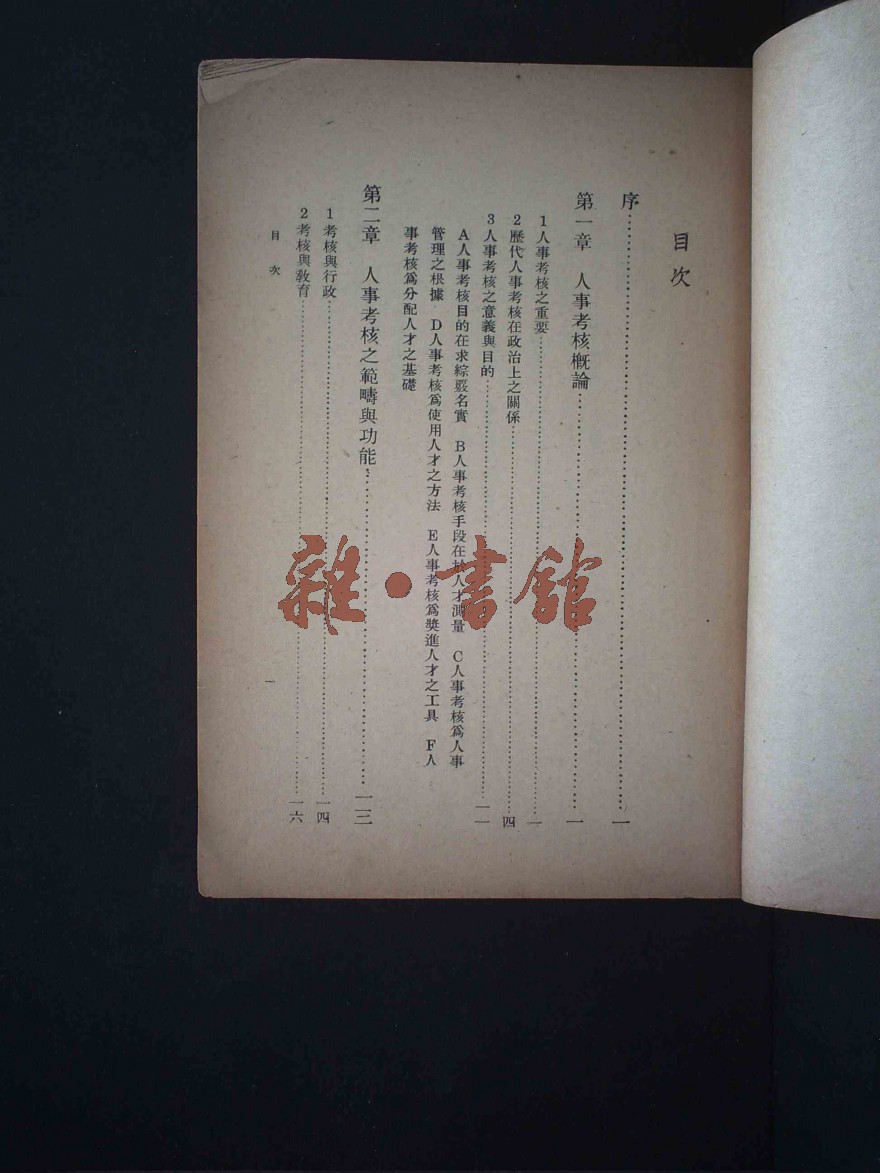 目次
序……一
第一章　人事考核概論……一
1人事考核之重要……一
2歷代人事考核在政治上之關係……四
3人事考核之意義與目的……一一
A人事考核目的在求綜覈名實　B人事考核手段在於人才測量　C人事考核爲人事
管理之根據　D人事考核爲使用人才之方法　E人事考核爲獎進人才之工具　F人
事考核爲分配人才之基礎
第二章　人事考核之範疇與功能……一三
1考核與行政……一四
2考核與敎育……一六
目次
一
雜·書館